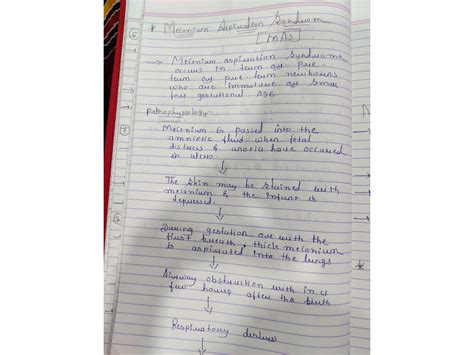 * Meconium Aspiration Syndrome
[MAS]
→ Meconium aspiration syndrome
occurs in term or pre-
term or pre-term newborns
who are immature or small
for gestational age
Pathophysiology-
Meconium is passed into the
amniotic fluid when fetal
distress & anoxia have occurred
in utero
↓
The skin may be stained with
meconium & the infant is
depressed.
↓
During gestation or with the
first breath, thick meconium
is aspirated into the lungs
↓
Airway obstruction with in a
few hours after the birth
↓
Respiratory distress